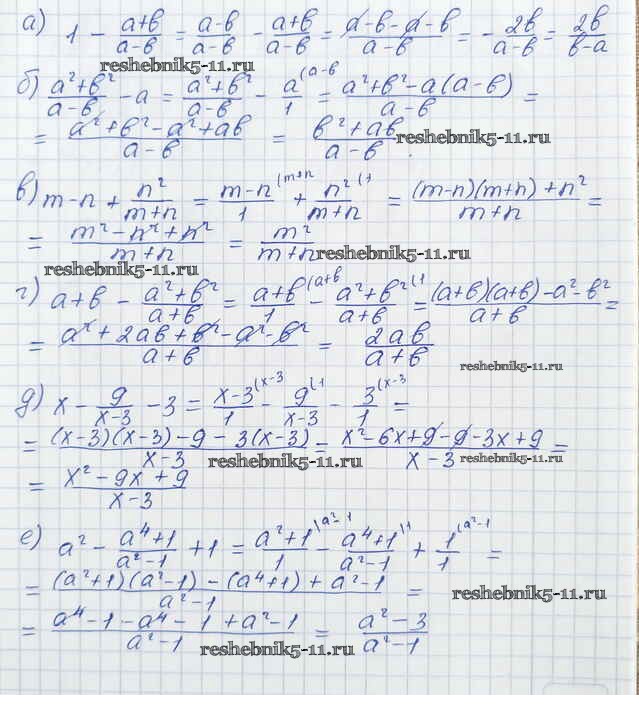 а) 1 - (a+b)/(a-b) = (a-b)/(a-b) - (a+b)/(a-b) = (a-b-a-b)/(a-b) = - 2b/(a-b) = 2b/(b-a)
reshebnik5-11.ru
б) (a²+b²)/(a-b) - a = (a²+b²)/(a-b) - a/1 (a-b = (a²+b²-a(a-b))/(a-b) =
= (a²+b²-a²+ab)/(a-b) = (b²+ab)/(a-b).
reshebnik5-11.ru
в) m-n + n²/(m+n) = (m-n)/1 (m+n + n²/(m+n) (1 = ((m-n)(m+n)+n²)/(m+n) =
= (m²-n²+n²)/(m+n) = m²/(m+n)
reshebnik5-11.ru
reshebnik5-11.ru
г) a+b - (a²+b²)/(a+b) = (a+b)/1 (a+b - (a²+b²)/(a+b) (1 = ((a+b)(a+b)-a²-b²)/(a+b) =
= (a²+2ab+b²-a²-b²)/(a+b) = 2ab/(a+b)
reshebnik5-11.ru
д) x - 9/(x-3) - 3 = (x-3)/1 (x-3 - 9/(x-3) (1 - 3/1 (x-3 =
= ((x-3)(x-3)-9-3(x-3))/(x-3) = (x²-6x+9-9-3x+9)/(x-3) =
reshebnik5-11.ru
reshebnik5-11.ru
= (x²-9x+9)/(x-3)
е) a² - (a⁴+1)/(a²-1) + 1 = (a²+1)/1 (a²-1 - (a⁴+1)/(a²-1) (1 + 1/1 (a²-1 =
= ((a²+1)(a²-1)-(a⁴+1)+a²-1)/(a²-1) =
reshebnik5-11.ru
= (a⁴-1-a⁴-1+a²-1)/(a²-1) = (a²-3)/(a²-1)
reshebnik5-11.ru